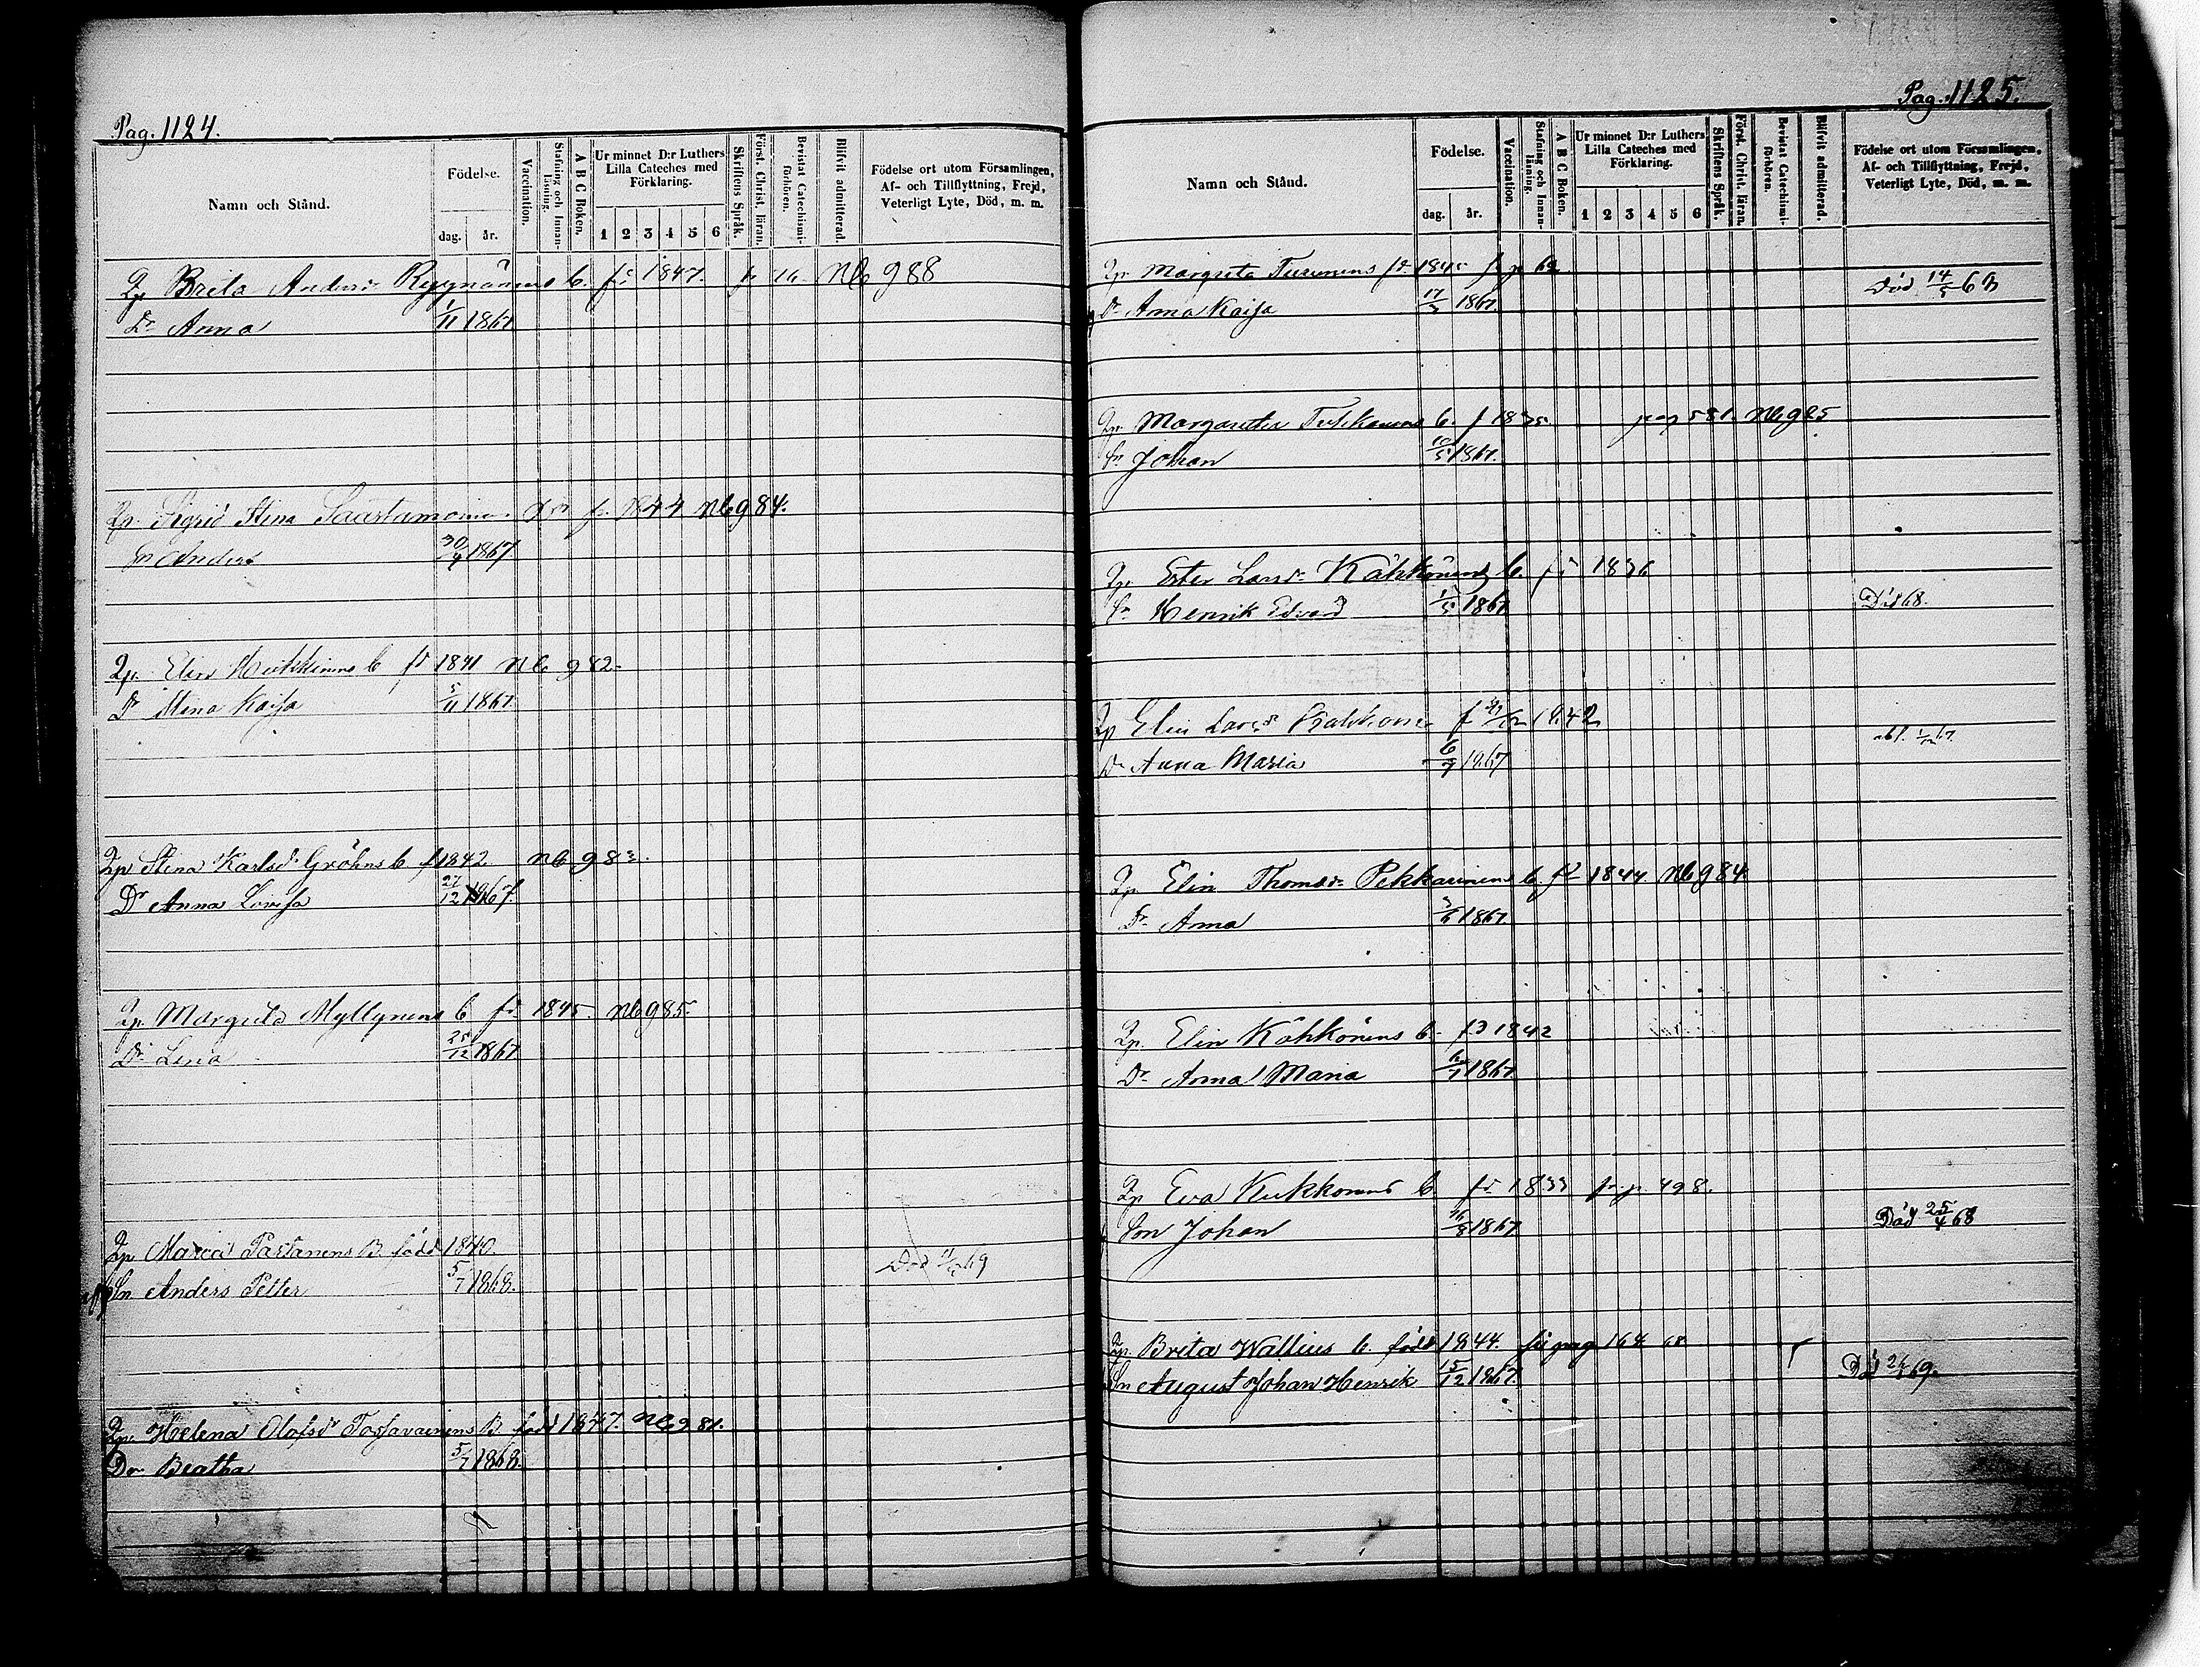 Pag. 1124.
Namn och Stånd.
Födelse.
dag. år.
Vaccination.
Stafning och Innan-läsning.
A B C Boken.
Ur minnet D:r Luthers Lilla Cateches med Förklaring.
1 2 3 4 5 6
Skriftens Språk.
Först. Christ. läran.
Bevistat Catechismi-förhören.
Blifvit admitterad.
Födelse ort utom Församlingen, Af- och Tillflyttning, Frejd, Veterligt Lyte, Död, m. m.
Qp Brita Andersd. 1847. Nb 988
Dr Anna 1/11 1867
Qp. Sigrid Stina Saastamoinen 1844 Nb 984.
Sn Anders 30/4 1867
Qp. Elin b fd 1841 Nb 982.
Dr Stina Kajsa 5/11 1867
Qp Stina Karlsd. Gröhns b f 1842. Nb 983.
Dr Anna Lovisa 27/12 1867.
Qp. Margreta Myllynens b fd. 1845. Nb 985.
Dr Lena 25/12 1867
Qp Maria Partanens B. född 1840.
Sn Anders Petter 5/7 1868. Död 69
Qp. Helena Olofsdr Tossavainens B. född 1847. Nb 981.
Dr Beatha 5/7 1868.
Pag. 1125.
Namn och Stånd.
Födelse.
dag. år.
Vaccination.
Stafning och Innan-läsning.
A B C Boken.
Ur minnet D:r Luthers Lilla Cateches med Förklaring.
1 2 3 4 5 6
Skriftens Språk.
Först. Christ. läran.
Bevistat Catechismi-förhören.
Blifvit admitterad.
Födelse ort utom Församlingen, Af- och Tillflyttning, Frejd, Veterligt Lyte, Död, m. m.
Qp. Margreta Turunens fd. 1845
Dr Anna Kaisa 17/3 1867. Död 14/5 68
Qp. Margareta b. f 1835. pag 581. Nb 925
Sn Johan 10/5 1867.
Qp. Ester Larsd. Kähkönens b. fd 1836
Sn Henrik Edvard 1867 Död 68.
Qp Elin Larsd. f 1842
Dr Anna Maria 6/7 1867
Qp. Elin Thomasdr Pekkarinens b fd 1844. Nb 984
Dr Anna 1867.
Qp. Elin Kähkönens b. fd 1842
Dr Anna Maria 6/7 1867
Qp Eva Kukkonens b. fd. 1833 p. 498.
Son Johan 16/8 1867 Död 25/4 68
Qp. Brita Wallius b. född 1844. pag 164
Sn August Johan Henrik 15/12 1867. Död 69.